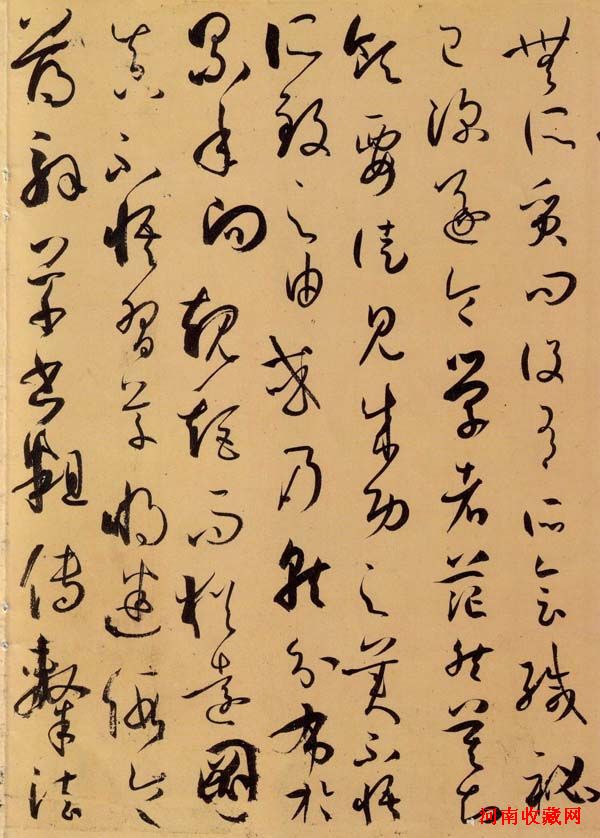 無所質問設有所會緘秘
已深遂令學者茫然莫知
領要徒見成功之美不悟
所致之由或乃就分布於
累年向規矩而猶遠圖
真不悟習草將迷假令
薄解草書粗傳隸法
河南收藏网